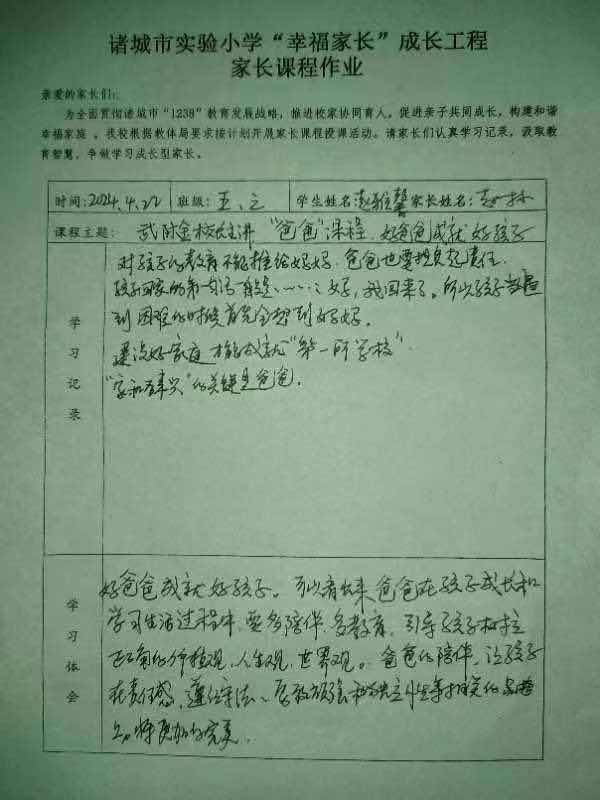 诸城市实验小学“幸福家长”成长工程
家长课程作业
亲爱的家长们:
为全面贯彻诸城市“1238”教育发展战略,推进校家协同育人,促进亲子共同成长,构建和谐
幸福家庭,我校根据教体局要求按计划开展家长课程授课活动。请家长们认真学习记录,汲取教
育智慧,争做学习成长型家长。
时间:2024.4.22 班级:五、立 学生姓名 家长姓名:
课程主题: 校长主讲“爸爸”课程,好爸爸成就好孩子
学习记录
对孩子的教育不能推给妈妈,爸爸也要担负起责任.
孩子回家的第一句话 是……妈,我回来了。所以孩子遇
到困难的时候首先会想到妈妈。
建设好家庭 才能成就“第一所学校”.
“家和万事兴”的关键是爸爸.
学习体会
好爸爸成就好孩子。可以看出来爸爸在孩子成长和
学习生活过程中,要多陪伴,多教育,引导孩子树立
正确的价值观,人生观,世界观。爸爸的陪伴,让孩子
在责任感,遵纪守法、 坚强和独立 等 的
上,将更加的完美.